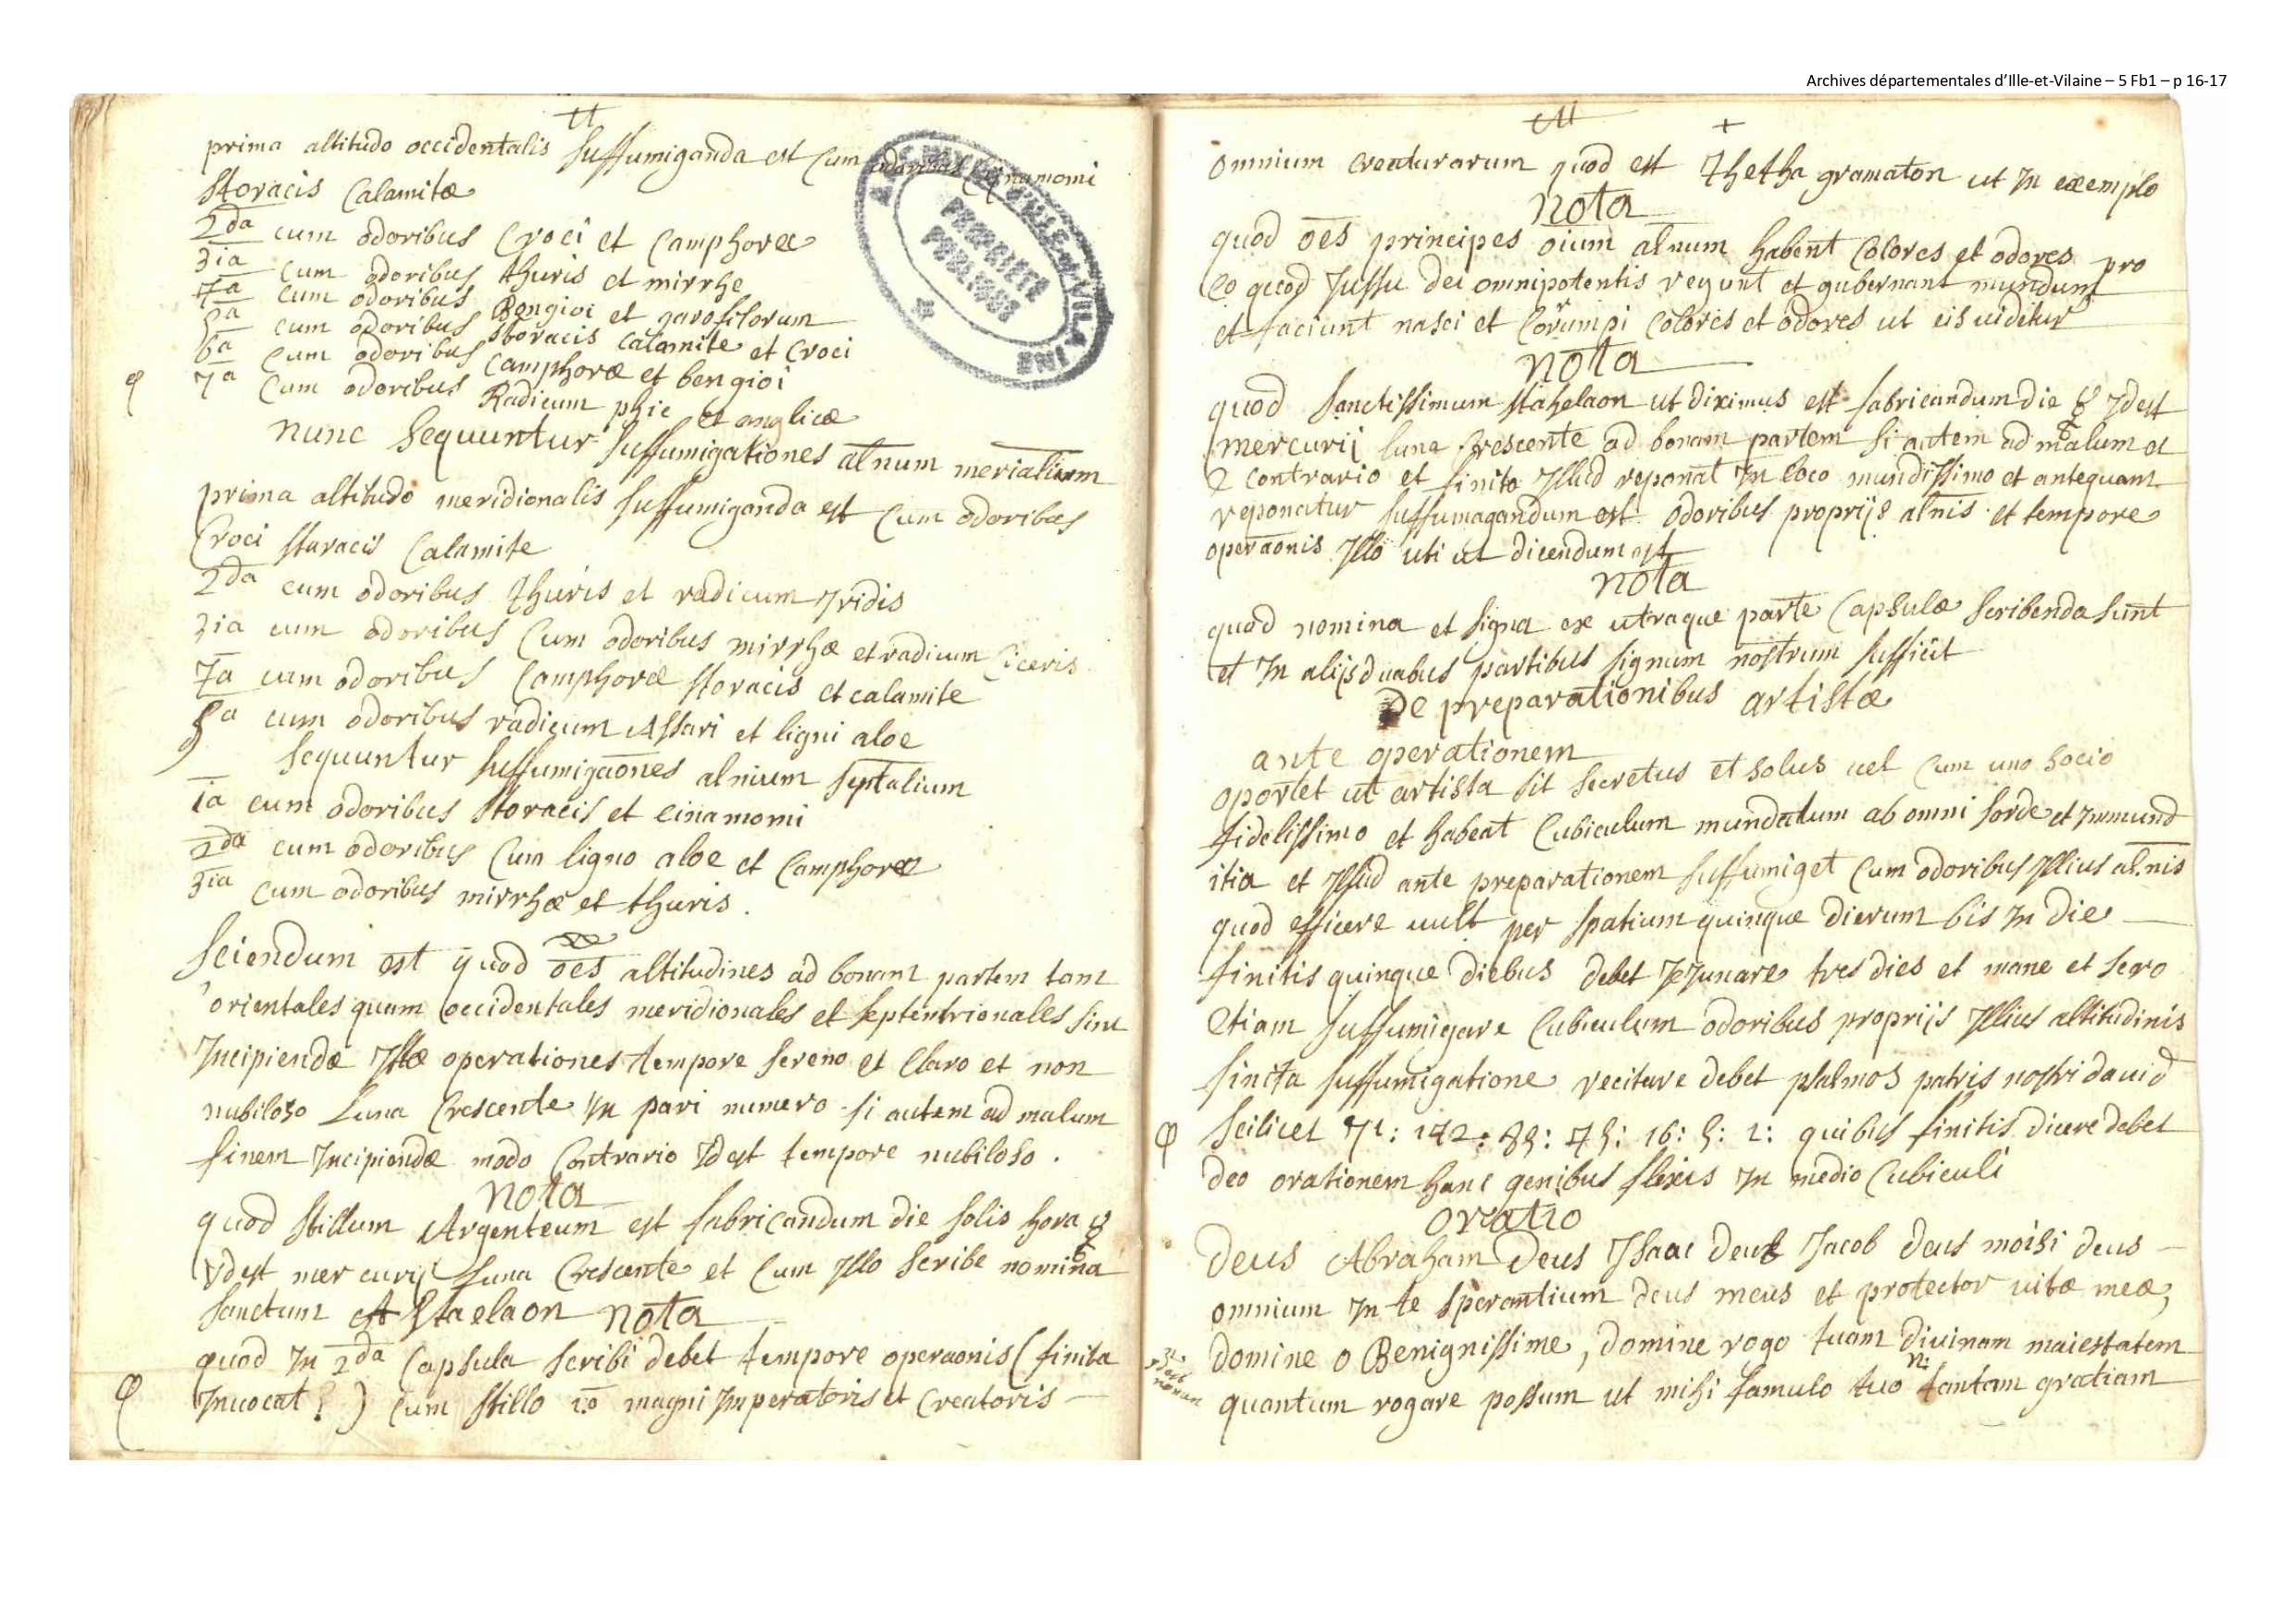 Archives départementales d'Ille-et-Vilaine – 5 Fb1 – p 16-17
prima altitudo occidentalis suffumiganda est cum odoribus Cinamomi
storacis Calamitæ
2da cum odoribus Croci et Camphoræ
3ia cum odoribus thuris et mirrhe
4a cum odoribus Bengioi et garofilorum
5a cum odoribus storacis calamite et Croci
6a cum odoribus Camphoræ et bengioi
7a cum odoribus Radicum phie et anglicæ
nunc sequuntur suffumigationes altnum merialium
prima altitudo meridionalis suffumiganda est cum odoribus
Croci staracis Calamite
2da cum odoribus thuris et radicum Iridis
3ia cum odoribus cum odoribus mirrhæ et radicum Ciceris
4a cum odoribus Camphoræ storacis et calamite
5a cum odoribus radicum Assari et ligni aloe
sequuntur suffumigaōnes alnium septalium
1a cum odoribus storacis et cinamomi
2da cum odoribus cum ligno aloe et Camphoræ
3ia cum odoribus mirrhæ et thuris.
Sciendum est quod oēs altitudines ad bonam partem tam
orientales quam occidentales meridionales et septentrionales sint
Incipiendæ Istæ operationes tempore sereno et Claro et non
nubiloso Luna Crescente In pari numero si autem ad malum
finem Incipiendæ modo Contrario Idest tempore nubiloso.
nota
quod stillum Argenteum est fabricandum die solis hora ☿
Ydest mercurij Luna Crescente et Cum Illo scribe nomina
sanctum Astaelaon nota
quod In 2da Capsula scribi debet tempore operaonis (finita
Inuocat?) Cum stillo magni Imperatoris et Creatoris
omnium creaturarum quod est Thetha gramaton ut In exemplo
nota
quod oēs principes oīum alnum habent Colores et odores pro
eo quod Iussu dei omnipotentis regunt et gubernant mundum
et faciunt nasci et Corrumpi Colores et odores ut eis uidetur
nota
quod sanctissimum stahelaon ut diximus est fabricandum die ☿ Idest
mercurij luna Crescente ad bonam partem si autem ad malum a
e contrario et finito Illud reponat In loco mundissimo et antequam
reponatur suffumagandum est odoribus proprijs alnis et tempore
operaōnis Illo uti ut dicendum est
nota
quod nomina et signa ex utraque parte Capsulæ scribenda sunt
et In alijs duabus partibus signum nostrum sufficit
De preparationibus artistæ
ante operationem
oportet ut artista sit secretus et solus uel Cum uno socio
fidelissimo et habeat Cubiculum mundatum ab omni sorde et Inmund
itia et Illud ante preparationem suffumiget Cum odoribus Illius al.nis
quod efficere uult per spatium quinque dierum bis In die
finitis quinque diebus debet Ieiunare tres dies et mane et sero
etiam suffumigare Cubiculum odoribus proprijs Illius altitudinis
finita suffumigatione recitare debet psalmos patris nostri dauid
scilicet quibus finitis dicere debet
deo orationem hanc genibus flexis In medio Cubiculi
oratio
Deus Abraham Deus Isaac Deus Jacob deus moisi deus
omnium In te sperantium deus meus et protector uitæ meæ,
domine o Benignissime, domine rogo tuam diuinam maiestatem
quantum rogare possum ut mihi famulo tuo N: tantam gratiam